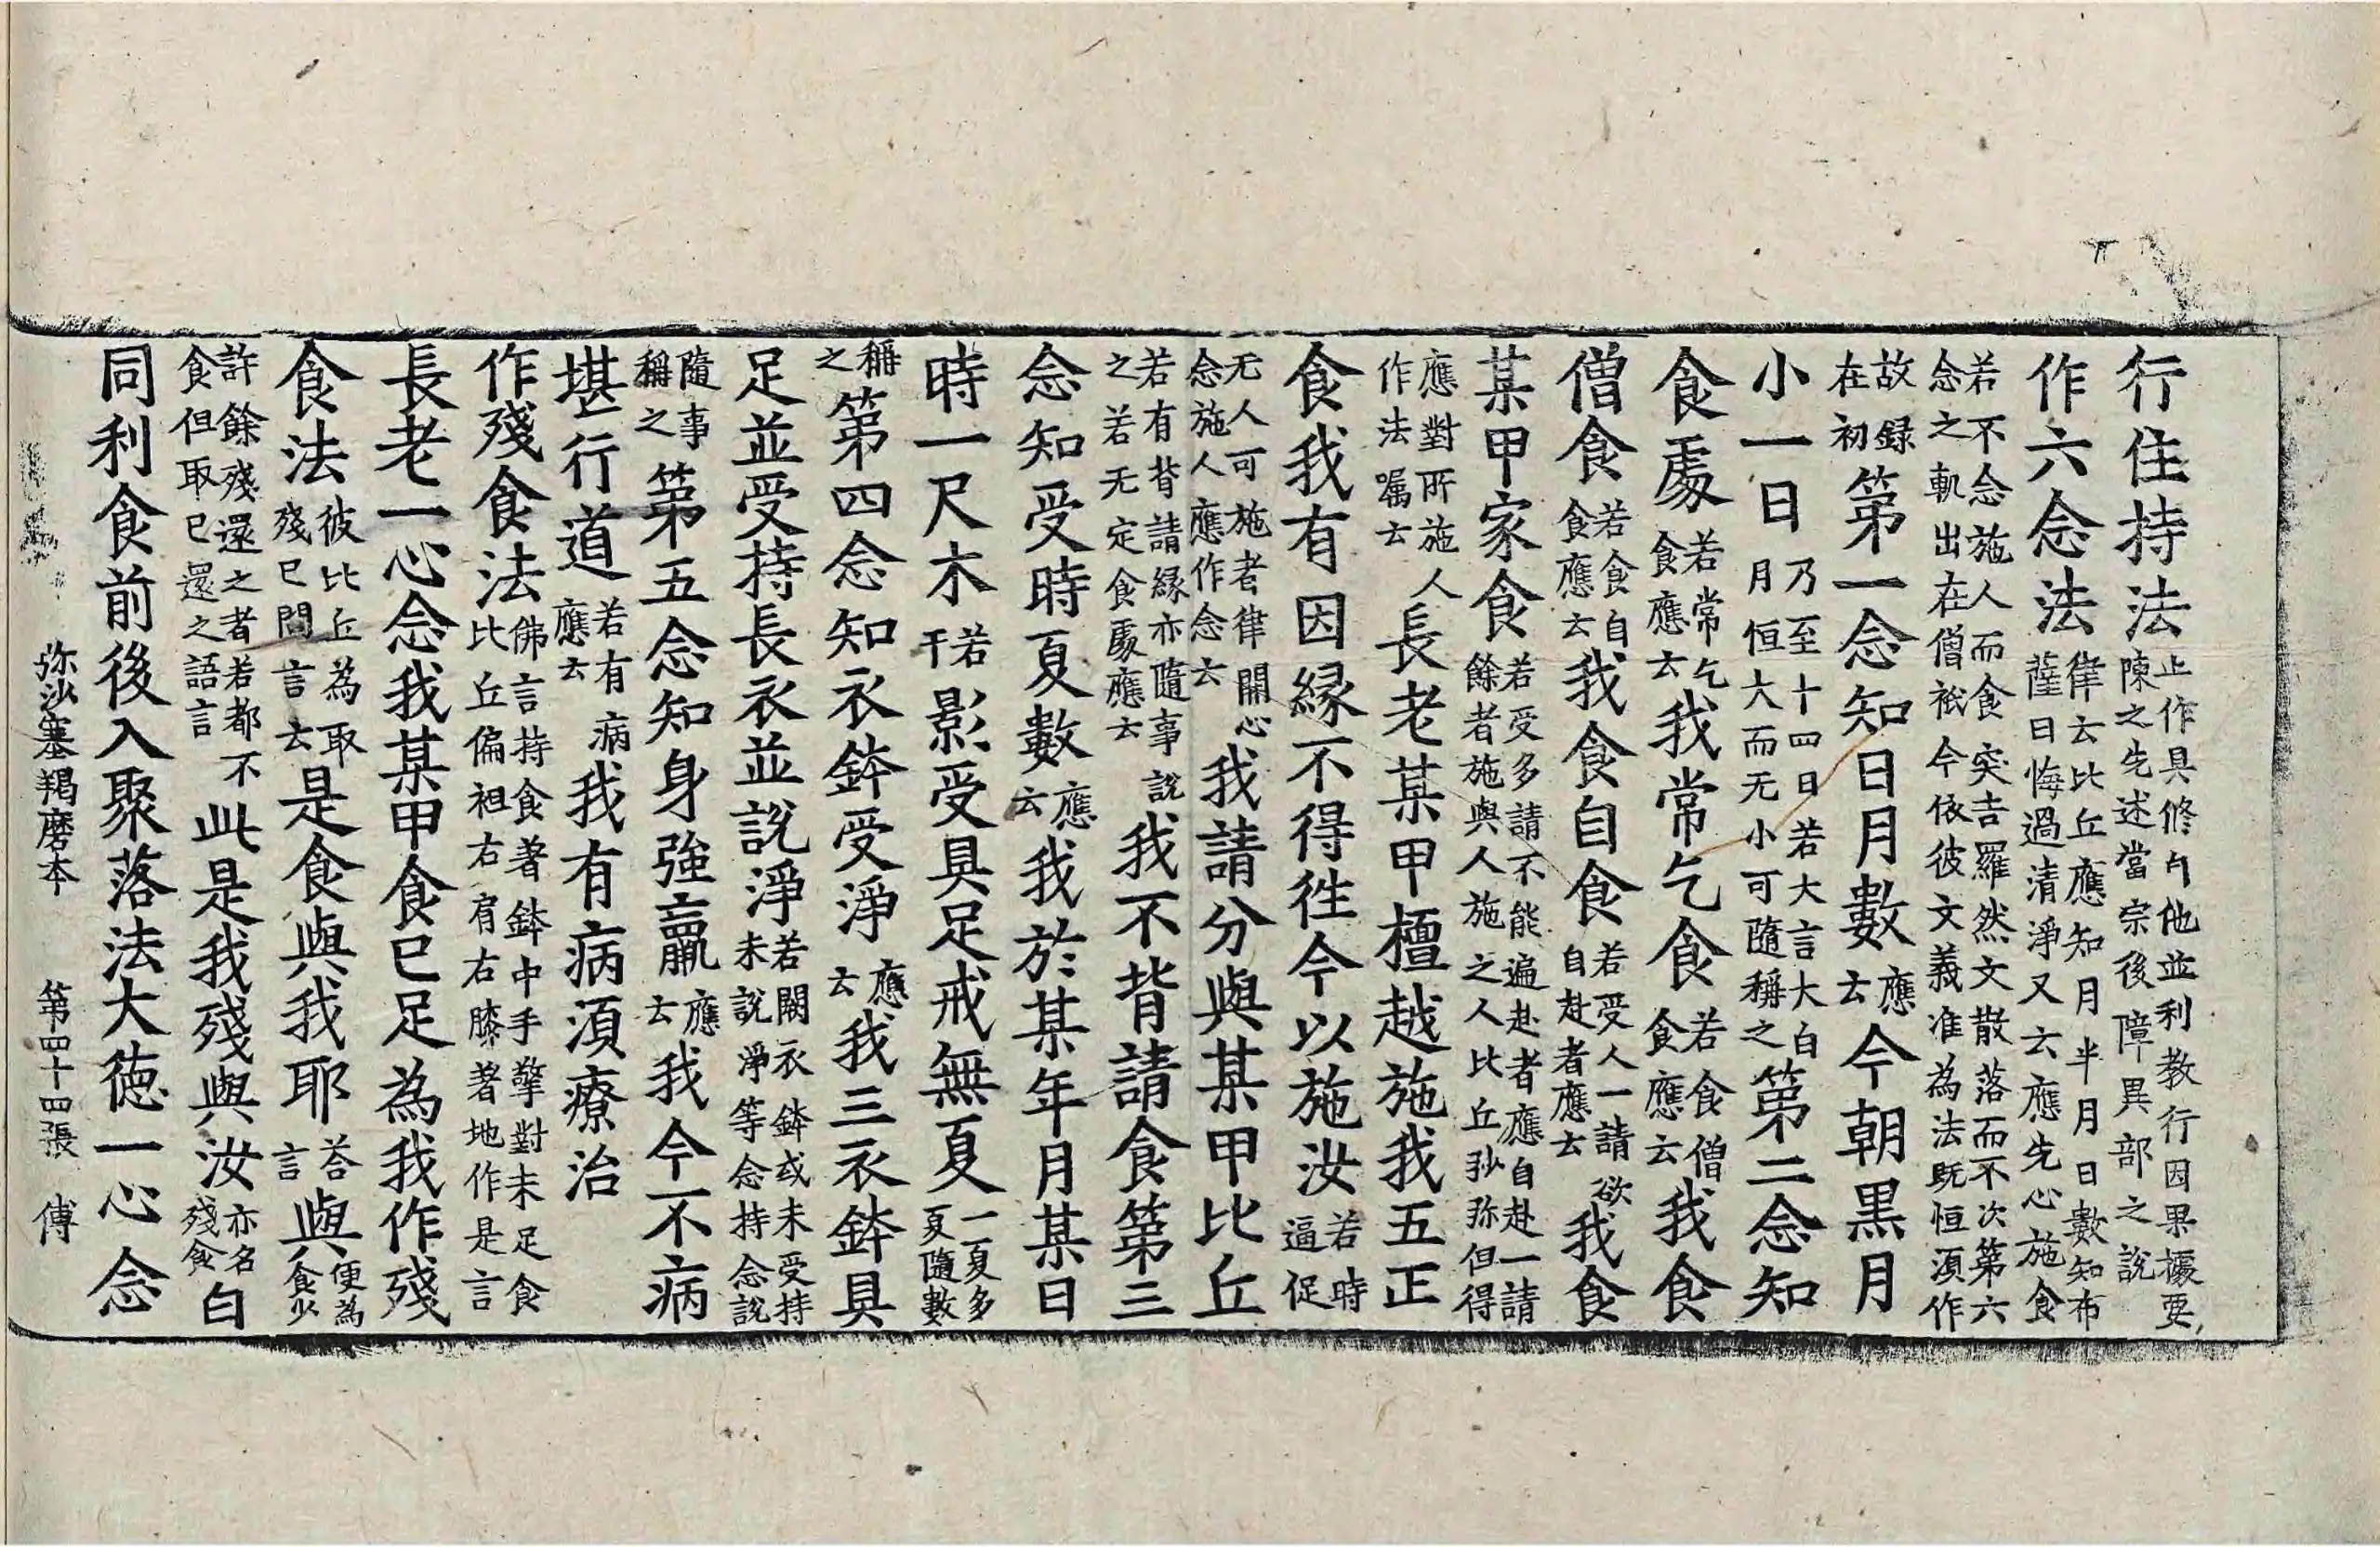 行住持法止作具修自他並利教行因果櫎要陳之先述當宗後障異部之說
作六念法律云比丘應知月半月日數知布薩日悔過清淨又云應先心施食
若不念施人而食突吉羅然文散落而不次第六念之軌出在僧祇今依彼文義准為法既恒湏作
故録在初第一念知日月數應云今朝黒月
小一日乃至十四日若大言大白月恒大而无小可隨稱之第二念知
食處若常乞食應云我常乞食若食僧食應云我食
僧食若食自食應云我食自食若受人一請欲自赴者應云我食
某甲家食若受多請不能遍赴者應自赴一請餘者施與人施之人比丘沙弥但得
應對所施人作法嘱云長老某甲檀越施我五正
食我有因縁不得徃今以施汝若時逼促
无人可施者律開心念施人應作念云我請分與某甲比丘
若有背請縁亦隨事說之若无定食處應云我不背請食第三
念知受時夏數應云我於某年月某日
時一尺木若干影受具足戒無夏一夏多夏隨數
稱之第四念知衣鉢受淨應云我三衣鉢具
足並受持長衣並說淨若闕衣鉢或未受持未說淨等念持念說
隨事稱之第五念知身強羸應云我今不病
堪行道若有病應云我有病湏療治
作殘食法佛言持食著鉢中手擎對未足食比丘偏袒右肩右膝著地作是言
長老一心念我某甲食已足為我作殘
食法彼比丘為取殘已問言云是食與我耶荅言與便為食少
許餘殘還之者若都不食但取已還之語言此是我殘與汝亦名殘食白
同利食前後入聚落法大徳一心念
弥沙塞羯磨本 第四十四張 傅